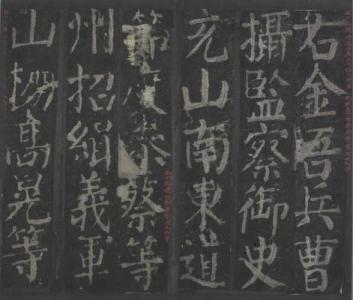 右金吾兵曹
攝監察御史
充山南東道
節度
蔡等
州招緝義軍
山棚
晃等